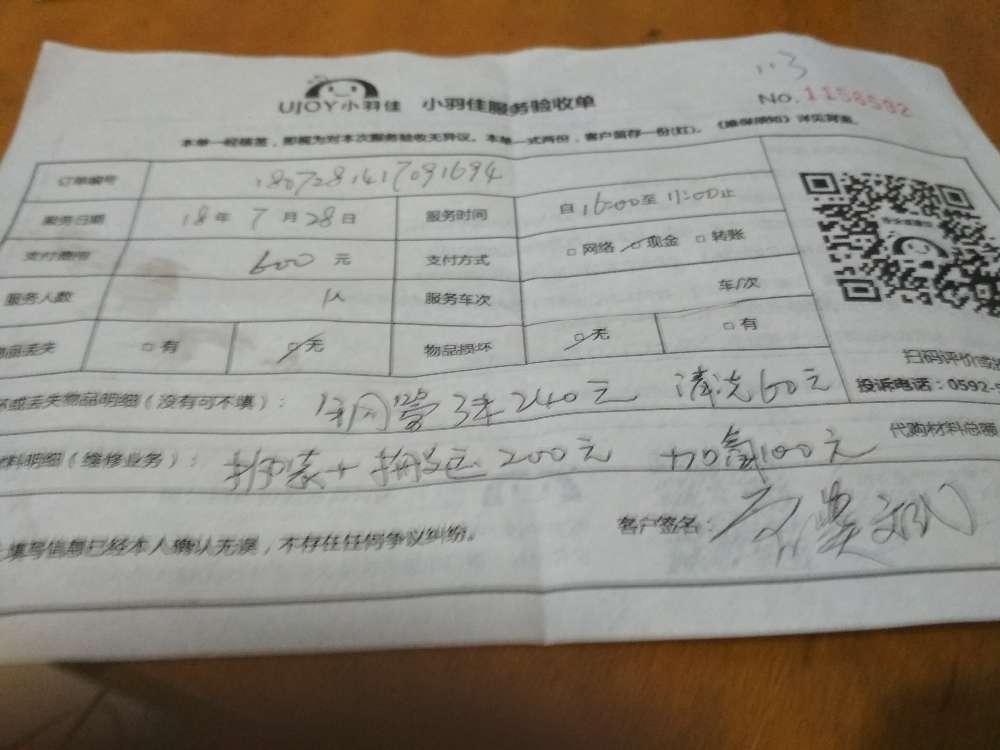 113
UJOY小羽佳 小羽佳服务验收单 NO.1158592
本单一经核签，即视为对本次服务验收无异议。本单一式两份，客户留存一份(红)。《维保须知》详见背面。
订单编号 1807281417091694
服务日期 18年7月28日 服务时间 自16:00至17:00止
支付费用 600元 支付方式 □网络 ☑现金 □转账
服务人数 1人 服务车次 车/次
物品丢失 □有 ☑无 物品损坏 ☑无 □有
扫码评价
投诉电话：0592-
坏或丢失物品明细（没有可不填）： 铜管3米240元 清洗60元
代购材料总额
料明细（维修业务）： 拆装+搬运200元 加氟100元
填写信息已经本人确认无误，不存在任何争议纠纷。 客户签名：